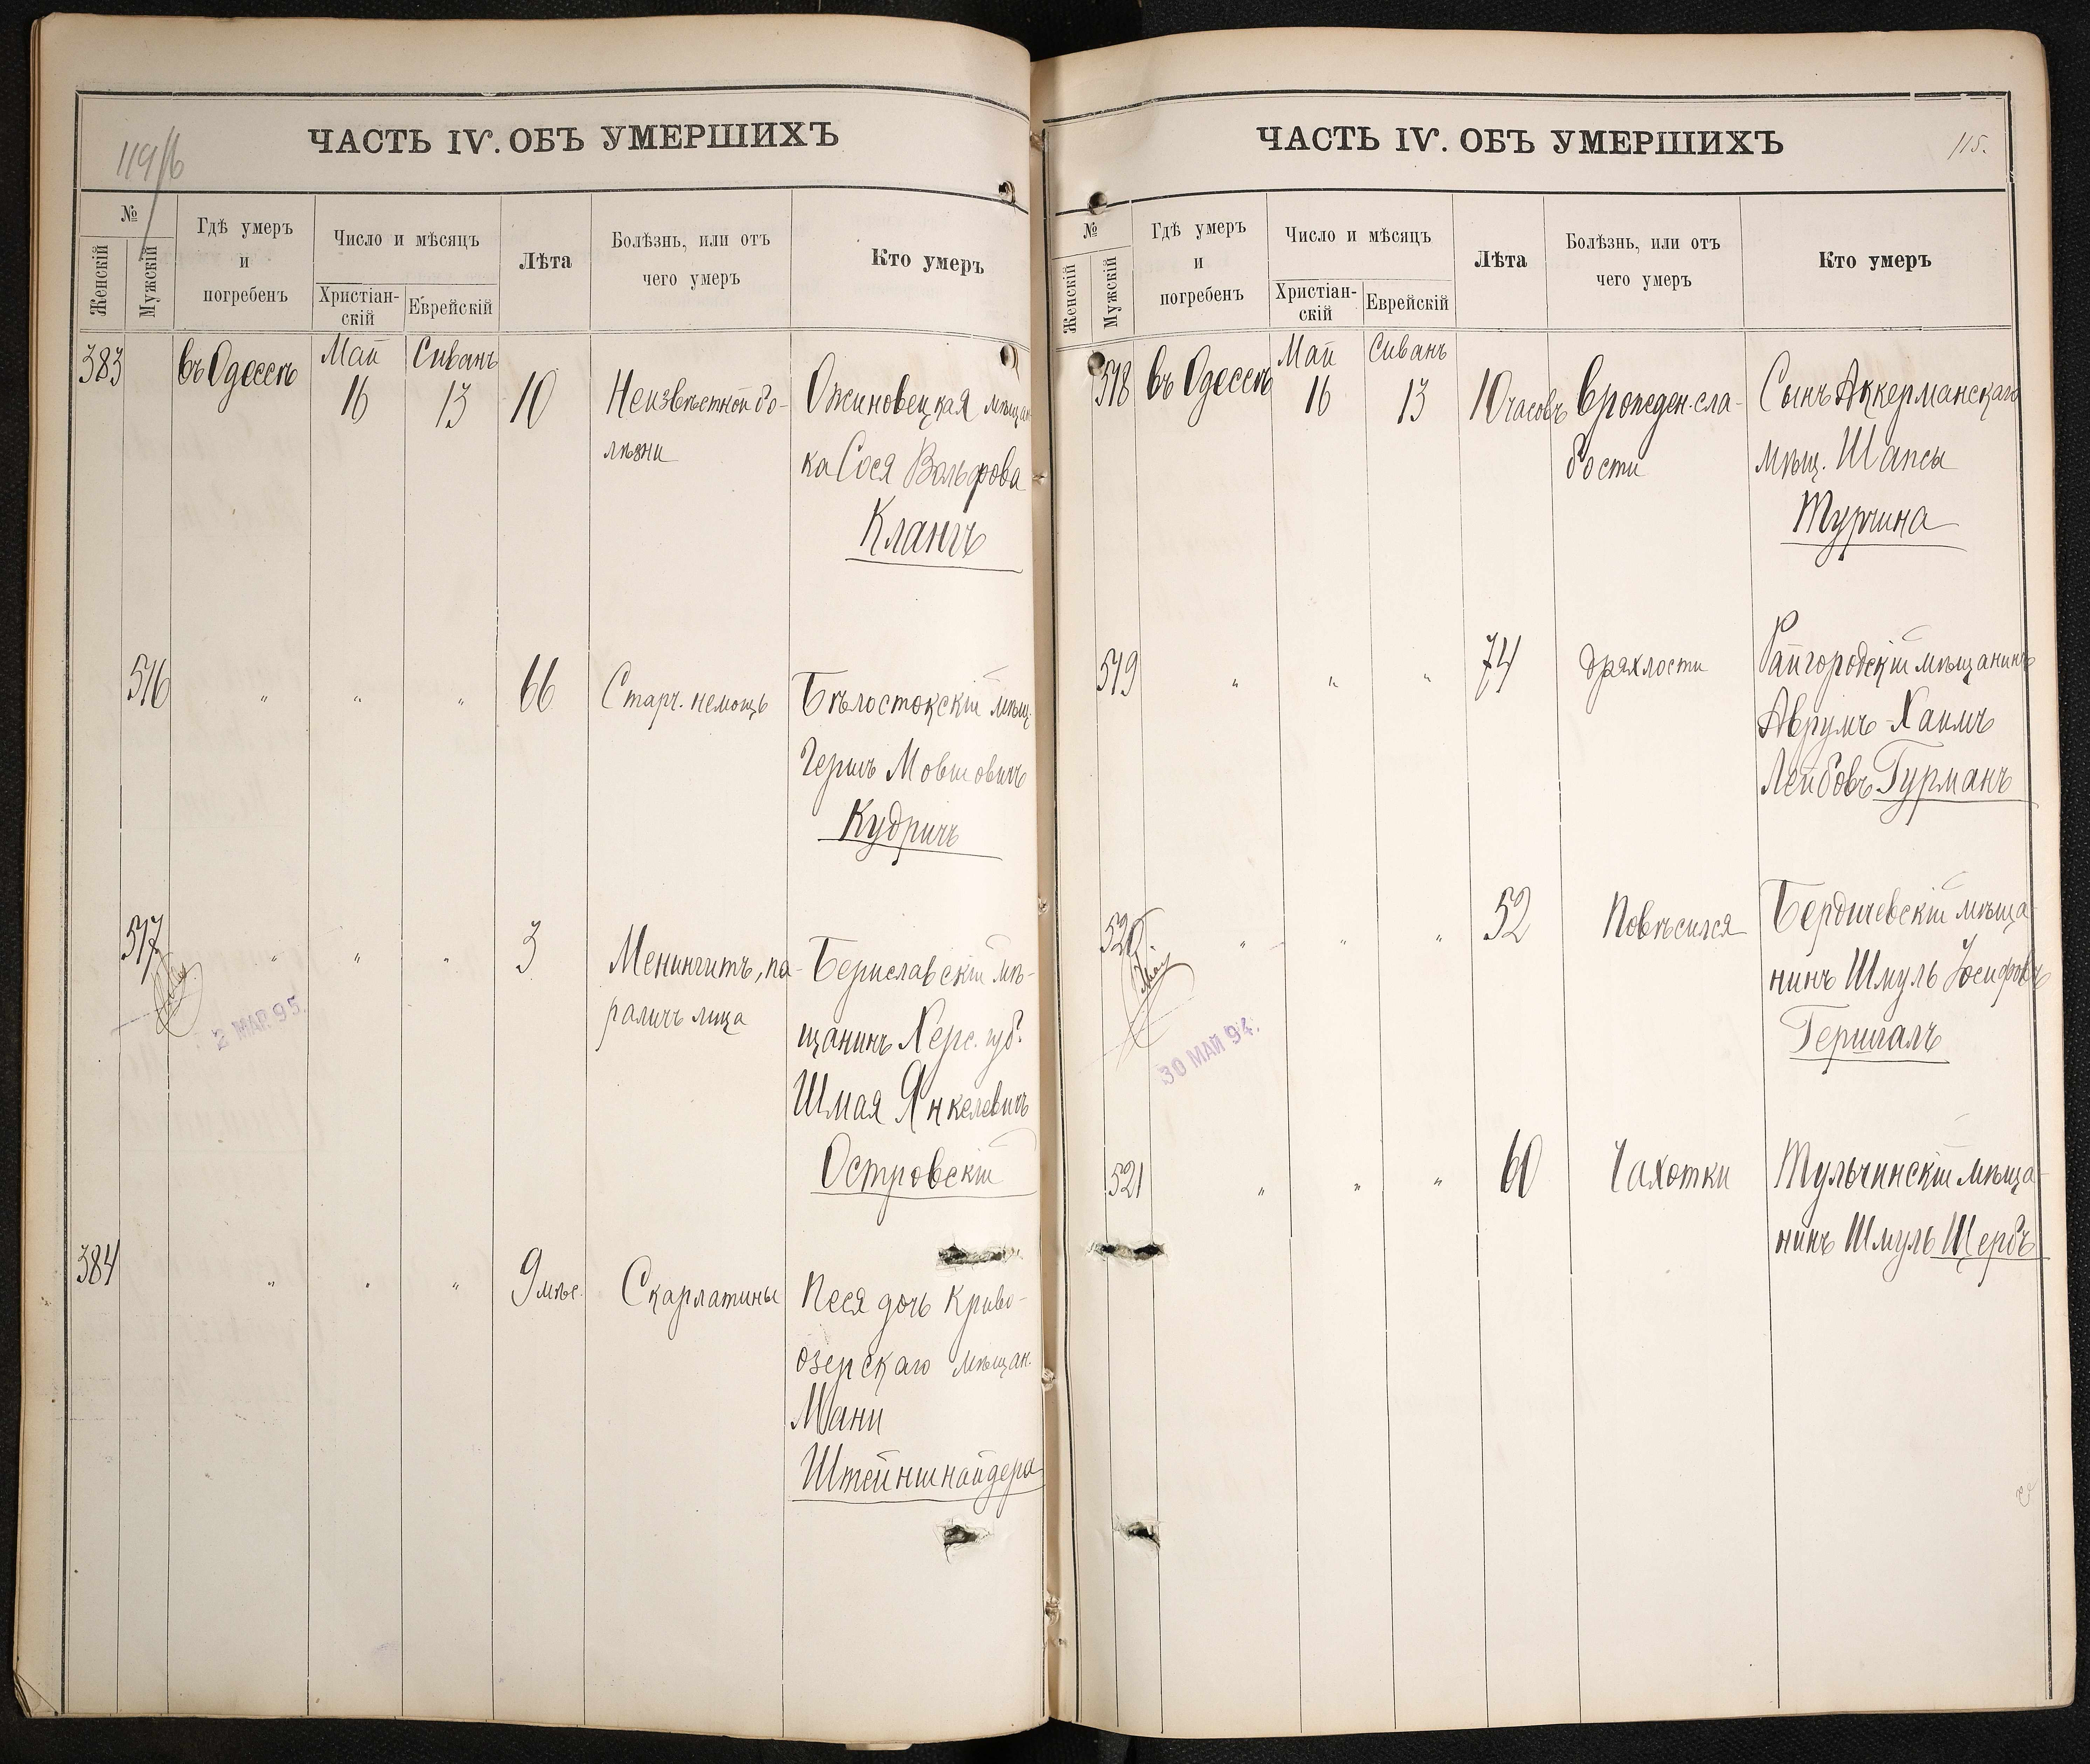 ЧАСТЬ IV. ОБЪ УМЕРШИХЪ
№
Женскій
Мужскій
Гдѣ умеръ
и
погребенъ
Число и мѣсяцъ
Христіан-
скій
Еврейскій
Лѣта
Болѣзнь, или отъ
чего умеръ
Кто умеръ
383
въ Одессѣ
Май
16
Сиванъ
13
10
Неизвѣстной бо-
лѣзни
Ожиновецкая мѣщан
ка Сося Вольфова
Клангъ
516
"
"
"
66
Старч. немощь
Бѣлостокскій мѣщ.
Гершъ Мовшовичъ
Кудричъ
517
"
"
"
3
Менингитъ, па-
раличъ лица
Бериславскій мѣ-
щанинъ Херс. губ.
Шмая Янкелевичъ
Островскій
2 МАР. 95.
384
"
"
"
9 мѣс.
Скарлатины
Песя дочь Криво-
озерскаго мѣщан.
Мани
Штейншнайдера
ЧАСТЬ IV. ОБЪ УМЕРШИХЪ
115.
№
Женскій
Мужскій
Гдѣ умеръ
и
погребенъ
Число и мѣсяцъ
Христіан-
скій
Еврейскій
Лѣта
Болѣзнь, или отъ
чего умеръ
Кто умеръ
518
въ Одессѣ
Май
16
Сиванъ
13
10 часовъ
врожден. сла-
бости
Сынъ Аккерманскаго
мѣщ. Шапсы
Турчина
519
"
"
"
74
дряхлости
Райгородскій мѣщанинъ
Аврумъ-Хаимъ
Лейбовъ Гурманъ
520.
"
"
"
52
Повѣсился
Бердичевскій мѣща-
нинъ Шмуль Іосифовъ
Гершгалъ
30 МАЙ 94.
521
"
"
"
60
Чахотки
Тульчинскій мѣща-
нинъ Шмуль Щербъ